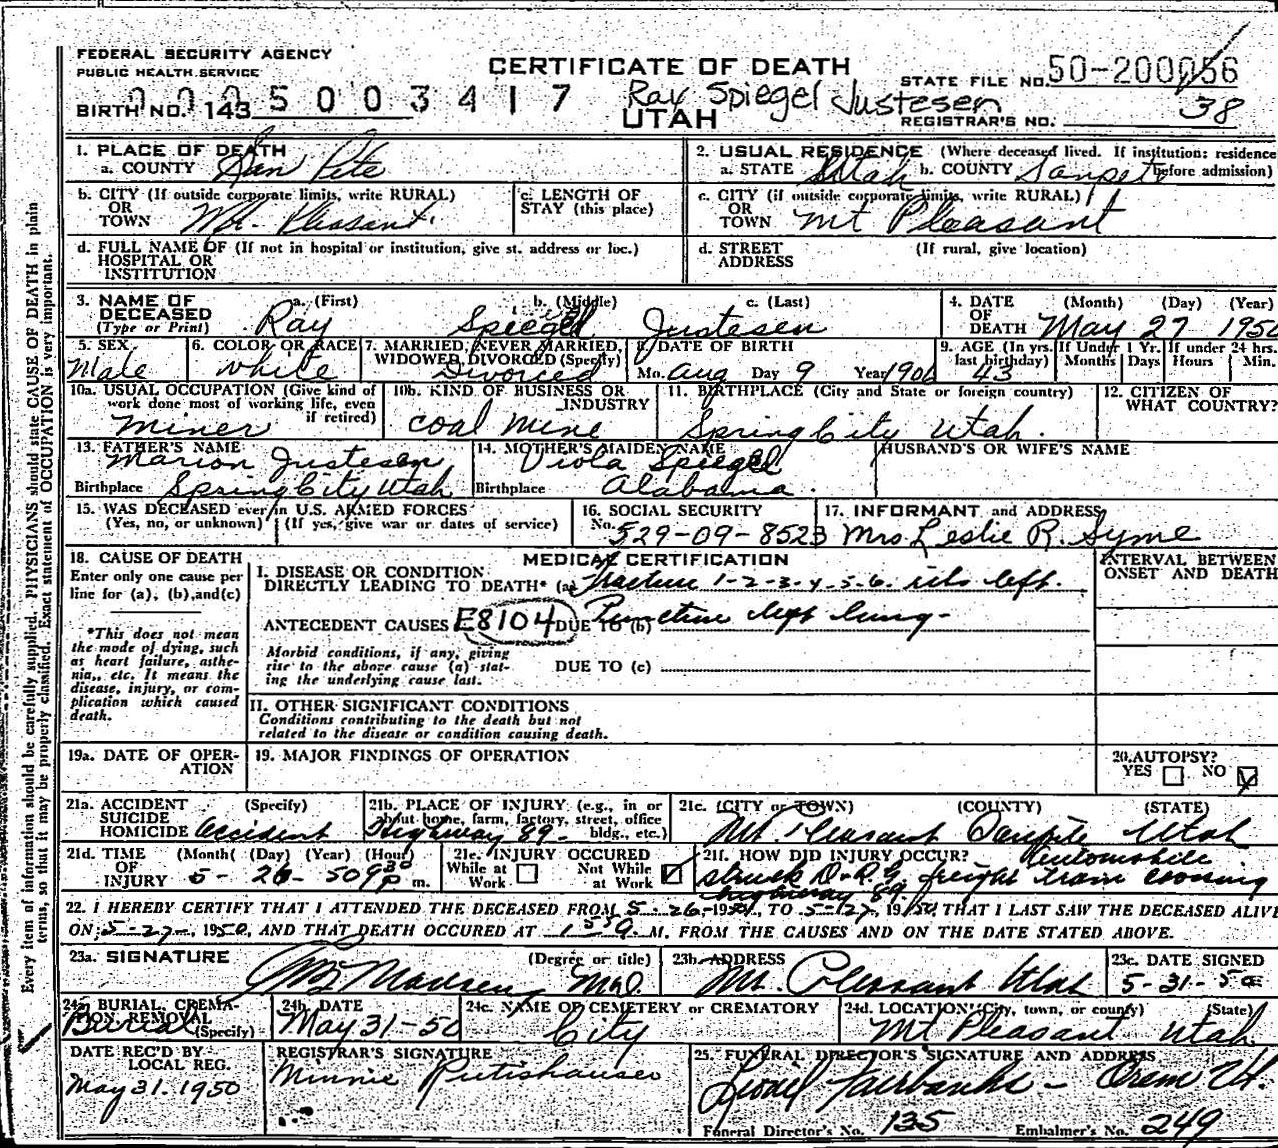 FEDERAL SECURITY AGENCY
PUBLIC HEALTH SERVICE
CERTIFICATE OF DEATH
STATE FILE NO. 50-200056
BIRTH NO. 143
0005003417
Ray Spiegel Justesen
38
UTAH
REGISTRAR'S NO.
1. PLACE OF DEATH
a. COUNTY San Pete
2. USUAL RESIDENCE (Where deceased lived. If institution: residence before admission)
a. STATE Utah b. COUNTY Sanpete
b. CITY (If outside corporate limits, write RURAL)
OR
TOWN Mt. Pleasant
c. LENGTH OF STAY (this place)
c. CITY (if outside corporate limits, write RURAL)
OR
TOWN Mt Pleasant
d. FULL NAME OF (If not in hospital or institution, give st. address or loc.)
HOSPITAL OR
INSTITUTION
d. STREET ADDRESS (If rural, give location)
3. NAME OF DECEASED (Type or Print)
a. (First) b. (Middle) c. (Last)
Ray Spiegel Justesen
4. DATE OF DEATH (Month) (Day) (Year)
May 27 1950
5. SEX Male
6. COLOR OR RACE white
7. MARRIED, NEVER MARRIED, WIDOWED, DIVORCED (Specify) Divorced
8. DATE OF BIRTH
Mo. Aug Day 9 Year 1906
9. AGE (In yrs. last birthday) 43
If Under 1 Yr. Months Days
If under 24 hrs. Hours Min.
10a. USUAL OCCUPATION (Give kind of work done most of working life, even if retired) Miner
10b. KIND OF BUSINESS OR INDUSTRY Coal Mine
11. BIRTHPLACE (City and State or foreign country) Spring City Utah.
12. CITIZEN OF WHAT COUNTRY?
13. FATHER'S NAME Marion Justesen
Birthplace Spring City Utah
14. MOTHER'S MAIDEN NAME Viola Spiegel
Birthplace Alabama.
HUSBAND'S OR WIFE'S NAME
15. WAS DECEASED ever in U.S. ARMED FORCES
(Yes, no, or unknown) (If yes, give war or dates of service)
16. SOCIAL SECURITY
No. 529-09-8523
17. INFORMANT and ADDRESS
Mrs. Leslie R. Syme
18. CAUSE OF DEATH
Enter only one cause per line for (a), (b), and (c)
*This does not mean the mode of dying, such as heart failure, asthenia, etc. It means the disease, injury, or complication which caused death.
MEDICAL CERTIFICATION
INTERVAL BETWEEN ONSET AND DEATH
I. DISEASE OR CONDITION
DIRECTLY LEADING TO DEATH* (a) Fracture 1-2-3-4-5-6. ribs left.
ANTECEDENT CAUSES E8104 DUE TO (b) Puncture left lung-
Morbid conditions, if any, giving rise to the above cause (a) stating the underlying cause last.
DUE TO (c)
II. OTHER SIGNIFICANT CONDITIONS
Conditions contributing to the death but not related to the disease or condition causing death.
19a. DATE OF OPERATION
19. MAJOR FINDINGS OF OPERATION
20. AUTOPSY?
YES NO
21a. ACCIDENT SUICIDE HOMICIDE (Specify) Accident
21b. PLACE OF INJURY (e.g., in or about home, farm, factory, street, office bldg., etc.) Highway 89-
21c. (CITY or TOWN) (COUNTY) (STATE)
Mt. Pleasant Sanpete Utah
21d. TIME OF INJURY (Month) (Day) (Year) (Hour)
5-26-50 9 30 P m.
21e. INJURY OCCURED
While at Work Not While at Work
21f. HOW DID INJURY OCCUR? Automobile
struck D.+R.G. freight train crossing
highway 89.
22. I HEREBY CERTIFY THAT I ATTENDED THE DECEASED FROM 5-26-1950, TO 5-27, 1950, THAT I LAST SAW THE DECEASED ALIVE
ON 5-27-, 1950, AND THAT DEATH OCCURED AT 1 55 A. M. FROM THE CAUSES AND ON THE DATE STATED ABOVE.
23a. SIGNATURE (Degree or title)
Madsen M.D.
23b. ADDRESS Mt. Pleasant Utah
23c. DATE SIGNED 5-31-50
24a. BURIAL, CREMATION, REMOVAL (Specify) Burial
24b. DATE May 31-50
24c. NAME OF CEMETERY or CREMATORY City
24d. LOCATION (City, town, or county) (State)
Mt Pleasant Utah
DATE REC'D BY LOCAL REG.
May 31. 1950
REGISTRAR'S SIGNATURE
Minnie Rutishauser
25. FUNERAL DIRECTOR'S SIGNATURE AND ADDRESS
Lionel Fairbanks - Orem Ut.
Funeral Director's No. 135 Embalmer's No. 249
Every item of information should be carefully supplied. PHYSICIANS should state CAUSE OF DEATH in plain
terms, so that it may be properly classified. Exact statement of OCCUPATION is very important.